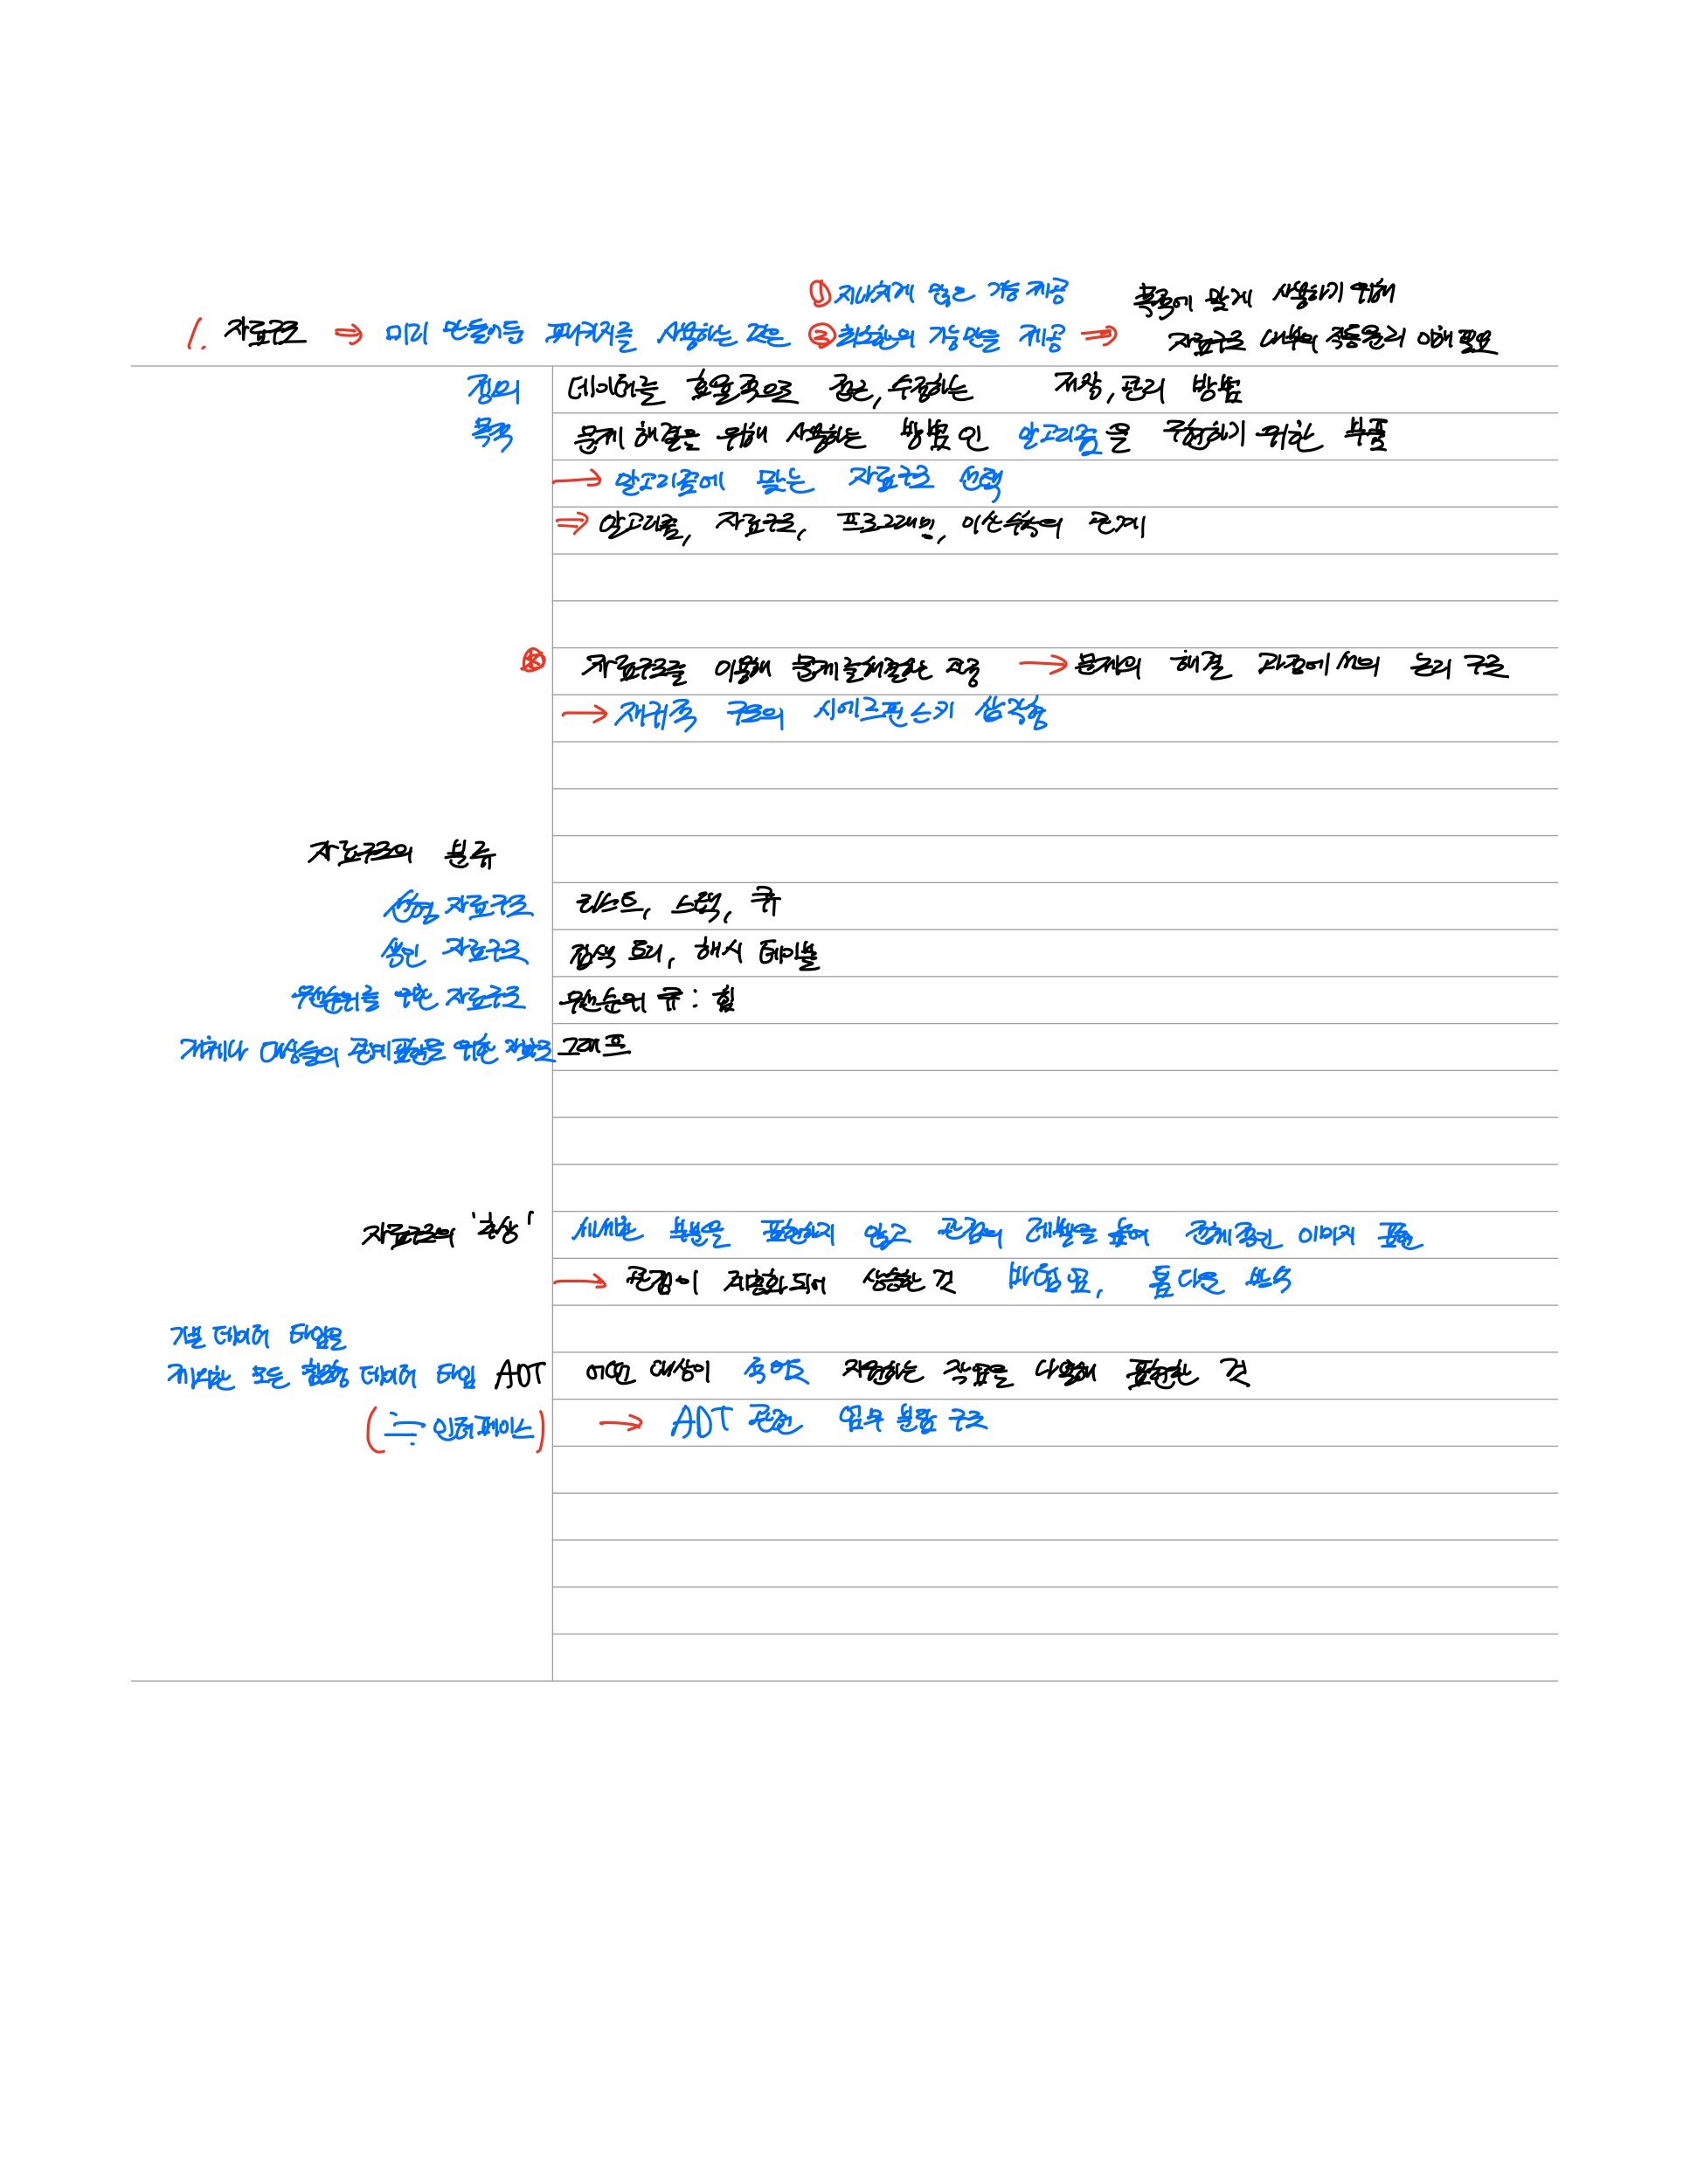 ① 지나치게 많은 기능 제공
목적에 맞게 사용하기 위해
1. 자료구조 ⇒ 미리 만들어둔 패키지를 사용하는 것은 ② 최소한의 기능만을 제공 ⇒ 자료구조 내부의 작동원리 이해 필요
정의 데이터를 효율적으로 접근, 수정하는 저장, 관리 방법
목적 문제 해결을 위해 사용하는 방법인 알고리즘을 구현하기 위한 부품
→ 알고리즘에 맞는 자료구조 선택
⇒ 알고리즘, 자료구조, 프로그래밍, 이산수학의 관계
자료구조를 이용해 문제를 해결하는 과정 → 문제의 해결 관점에서의 논리 구조
→ 재귀적 구조의 시에르핀스키 삼각형
자료구조의 분류
선형 자료구조 리스트, 스택, 큐
색인 자료구조 검색 트리, 해시 테이블
우선순위를 위한 자료구조 우선순위 큐 : 힙
개체나 대상들의 관계표현을 위한 자료구조 그래프
자료구조의 '추상' 세세한 부분을 표현하지 않고 관점의 레벨을 높여 전체적인 이미지 표현
→ 관점이 되어 상승한 것
기본 데이터 타입을
제외한 모든 데이터 타입 ADT 어떤 대상이 지원하는 작업을 나열해 표현한 것
(≒ 인터페이스) → ADT 관련 업무 분담 구조